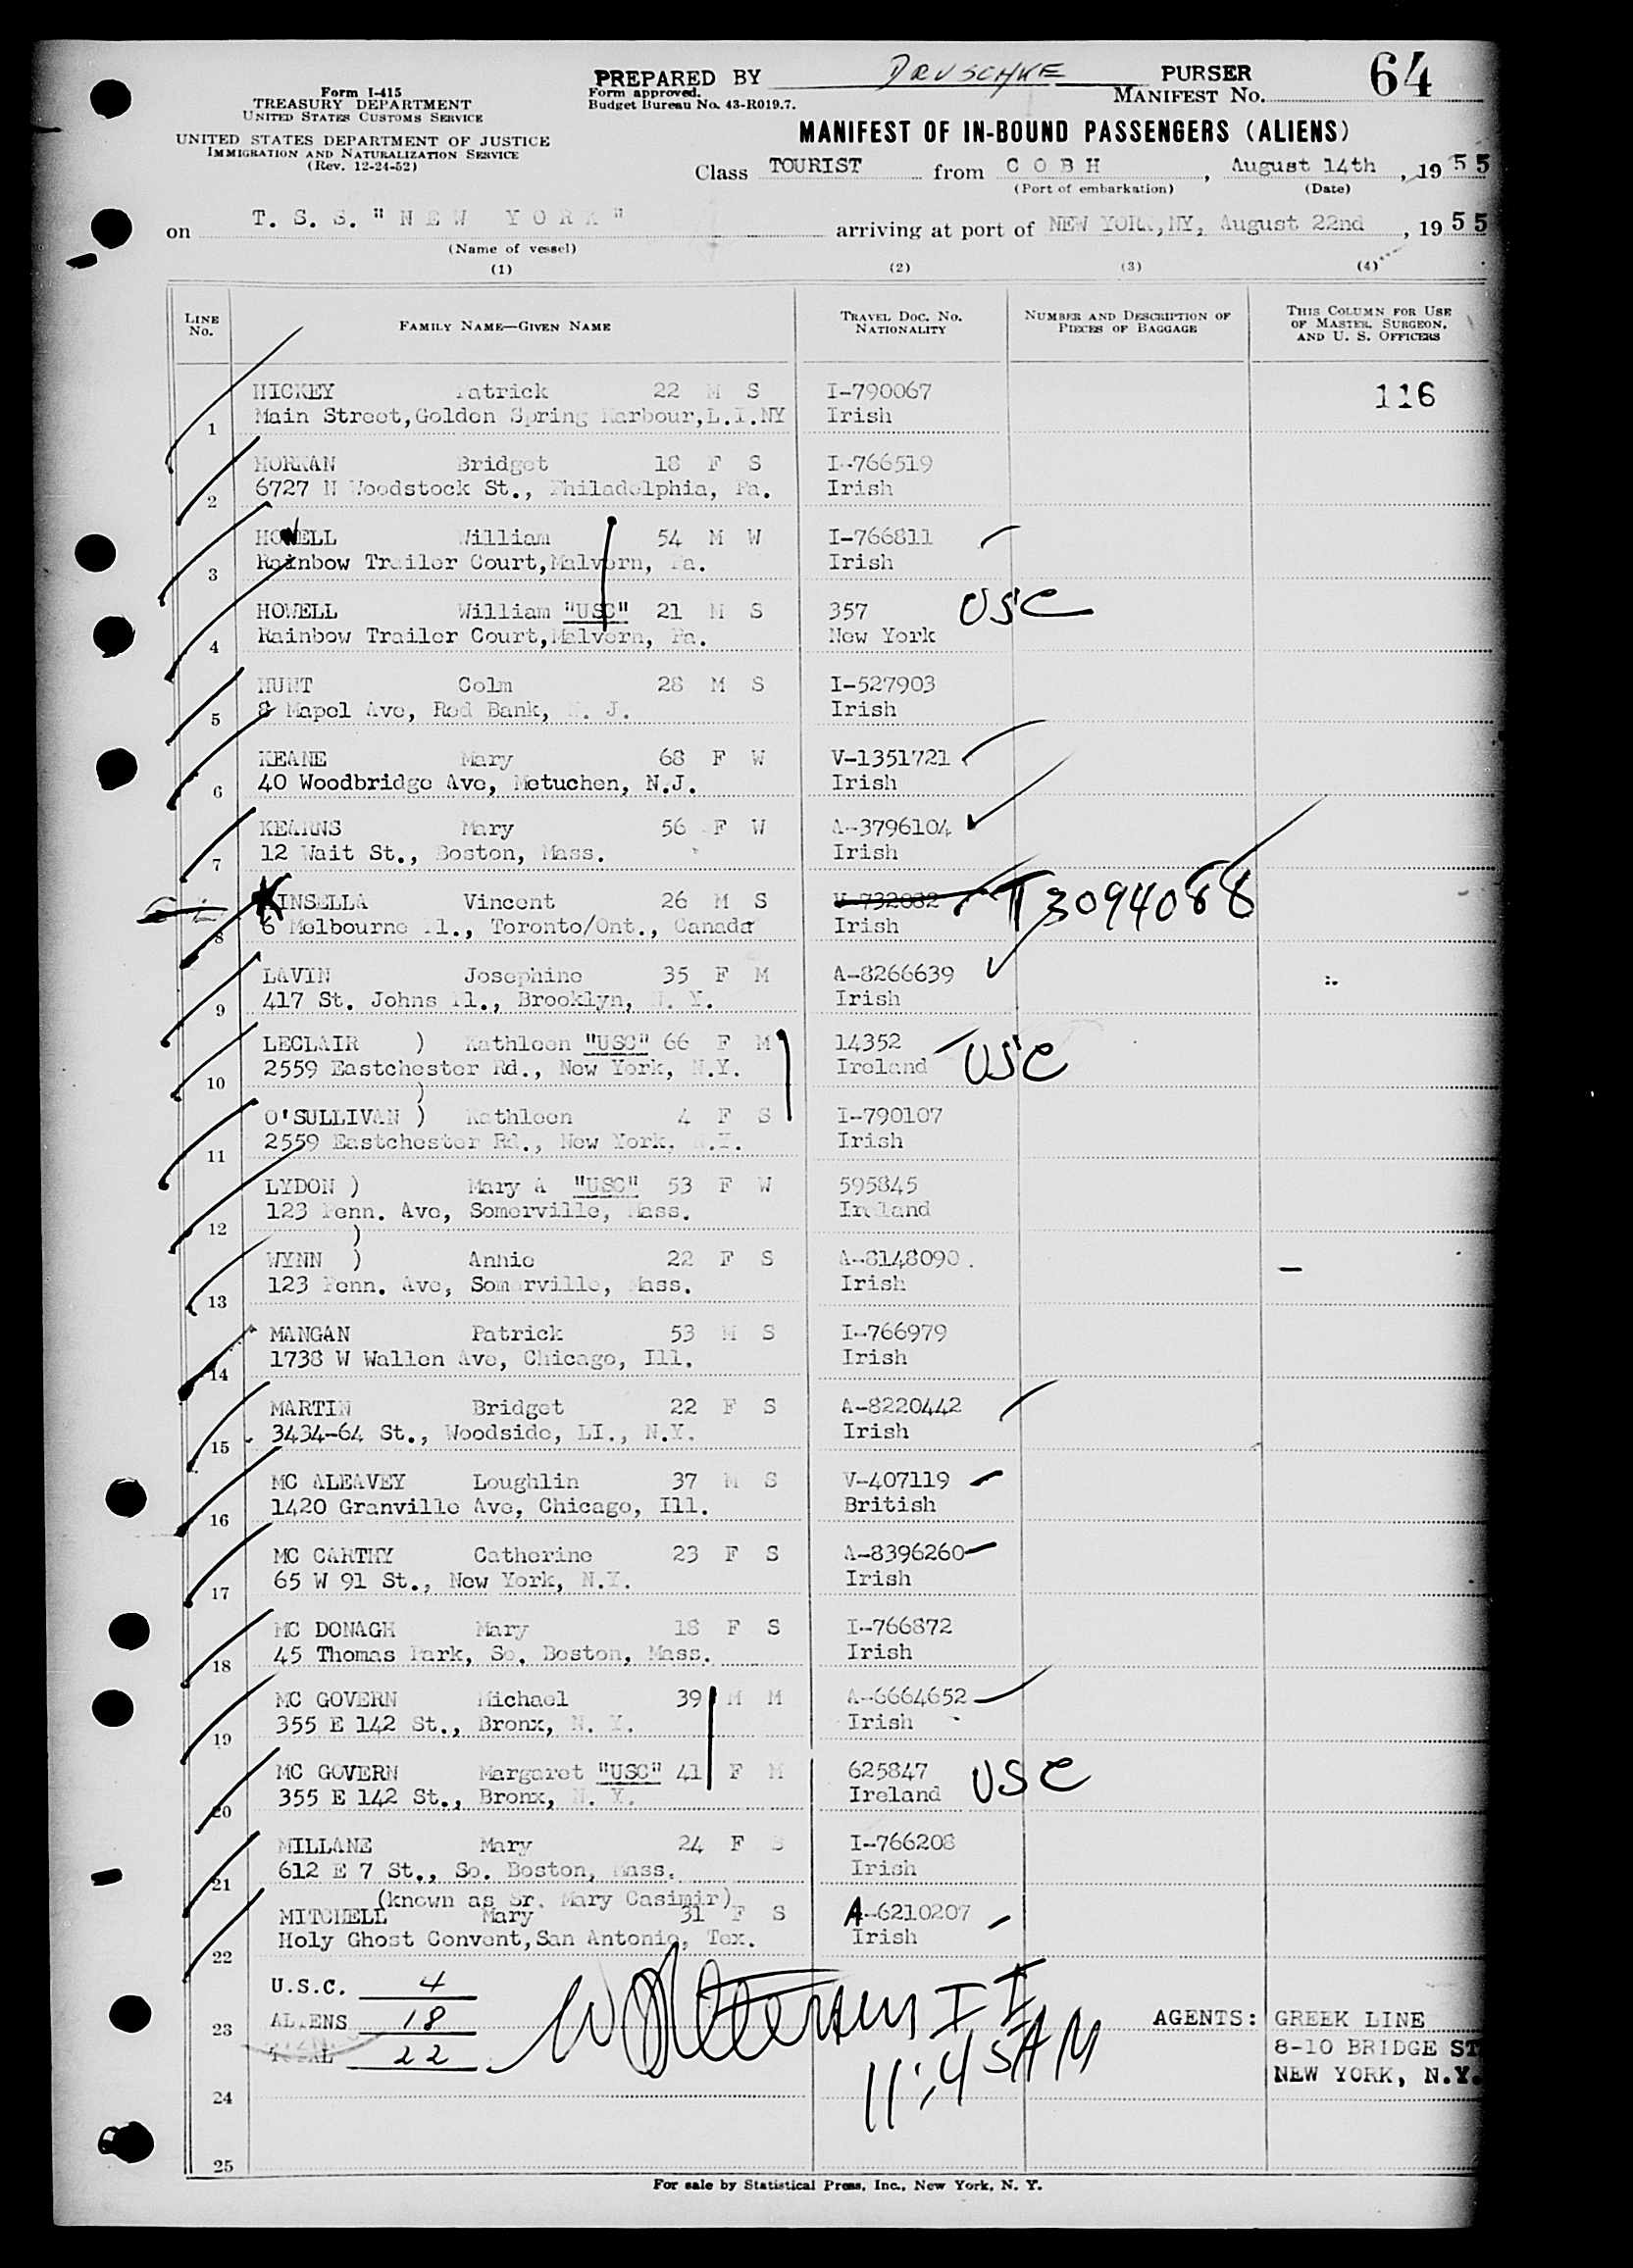 PREPARED BY DRUSCHKE PURSER
64
Form I-415
TREASURY DEPARTMENT
UNITED STATES CUSTOMS SERVICE
UNITED STATES DEPARTMENT OF JUSTICE
IMMIGRATION AND NATURALIZATION SERVICE
(Rev. 12-24-52)
Form approved.
Budget Bureau No. 43-R019.7.
MANIFEST NO.
MANIFEST OF IN-BOUND PASSENGERS (ALIENS)
Class TOURIST from C O B H, August 14th, 1955
(Port of embarkation) (Date)
on T. S. S. "N E W Y O R K" arriving at port of NEW YORK, NY, August 22nd, 1955
(Name of vessel)
(1) (2) (3) (4)
LINE No. FAMILY NAME—GIVEN NAME TRAVEL DOC. NO. NATIONALITY NUMBER AND DESCRIPTION OF PIECES OF BAGGAGE THIS COLUMN FOR USE OF MASTER, SURGEON, AND U. S. OFFICERS
HICKEY Patrick 22 M S I-790067 116
1 Main Street, Golden Spring Harbour, L.I.NY Irish
HORKAN Bridget 18 F S I-766519
2 6727 N Woodstock St., Philadelphia, Pa. Irish
HOWELL William 54 M W I-766811
3 Rainbow Trailer Court, Malvern, Pa. Irish
HOWELL William "USC" 21 M S 357 USC
4 Rainbow Trailer Court, Malvern, Pa. New York
HUNT Colm 28 M S I-527903
5 8 Mapel Ave, Red Bank, N. J. Irish
KEANE Mary 68 F W V-1351721
6 40 Woodbridge Ave, Metuchen, N.J. Irish
KEARNS Mary 56 F W A-3796104
7 12 Wait St., Boston, Mass. Irish
KINSELLA Vincent 26 M S V-732082 T 3094088
8 6 Melbourne Pl., Toronto/Ont., Canada Irish
LAVIN Josephine 35 F M A-8266639
9 417 St. Johns Pl., Brooklyn, N. Y. Irish
LECLAIR ) Kathleen "USC" 66 F M 14352 USC
10 2559 Eastchester Rd., New York, N.Y. Ireland
)
O'SULLIVAN ) Kathleen 4 F S I-790107
11 2559 Eastchester Rd., New York, N.Y. Irish
LYDON ) Mary A "USC" 53 F W 595845
12 123 Penn. Ave, Somerville, Mass. Ireland
)
WYNN ) Annie 22 F S A-8148090
13 123 Penn. Ave, Somerville, Mass. Irish
MANGAN Patrick 53 M S I-766979
14 1738 W Wallen Ave, Chicago, Ill. Irish
MARTIN Bridget 22 F S A-8220442
15 3434-64 St., Woodside, LI., N.Y. Irish
MC ALEAVEY Loughlin 37 M S V-407119
16 1420 Granville Ave, Chicago, Ill. British
MC CARTHY Catherine 23 F S A-8396260
17 65 W 91 St., New York, N.Y. Irish
MC DONAGH Mary 18 F S I-766872
18 45 Thomas Park, So. Boston, Mass. Irish
MC GOVERN Michael 39 M M A-6664652
19 355 E 142 St., Bronx, N. Y. Irish
MC GOVERN Margaret "USC" 41 F M 625847 USC
20 355 E 142 St., Bronx, N. Y. Ireland
MILLANE Mary 24 F S I-766208
21 612 E 7 St., So. Boston, Mass. Irish
(known as Sr. Mary Casimir)
MITCHELL Mary 31 F S A-6210207
22 Holy Ghost Convent, San Antonio, Tex. Irish
U.S.C. 4
23 ALIENS 18 AGENTS: GREEK LINE
TOTAL 22 11:45 AM 8-10 BRIDGE ST
NEW YORK, N.Y.
24
25
For sale by Statistical Press, Inc., New York, N. Y.